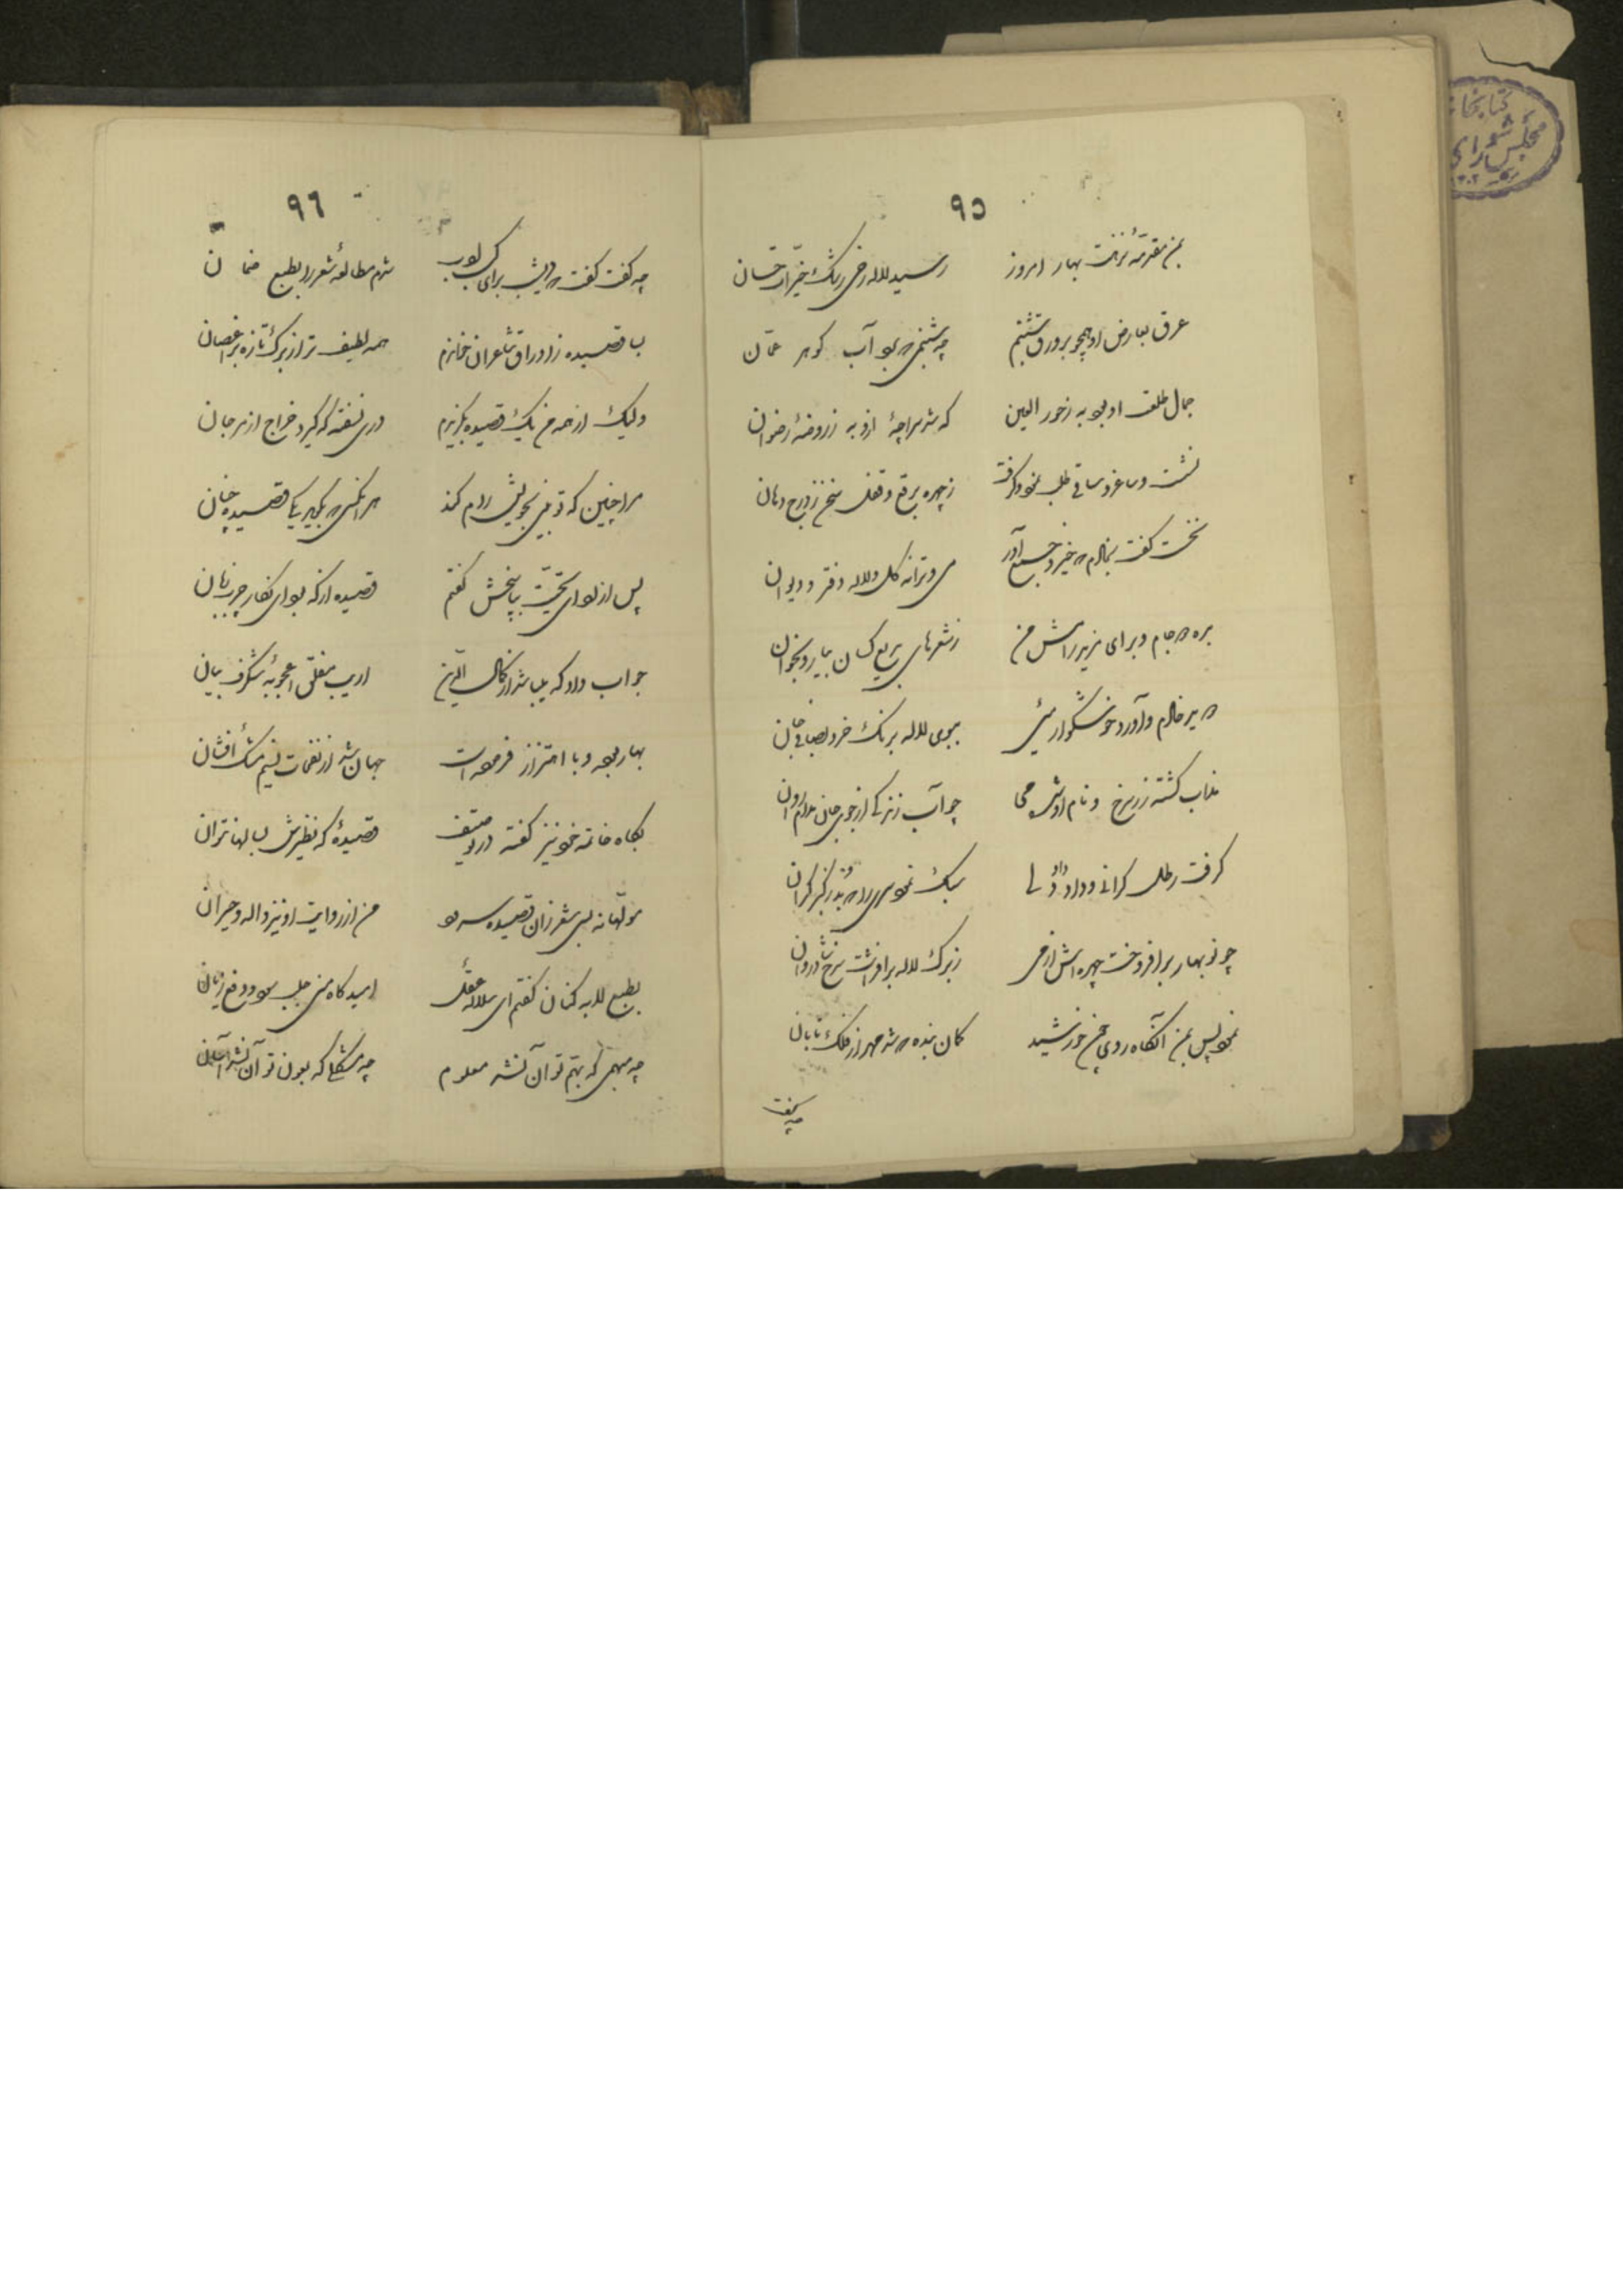 ٩٥
بمن مقدمهٔ نزهت بهار امروز
رسید لاله رخی رشک خیرات حسان
عرق بعارض او همچو بر ورق شبنم
چه شبنمی که بود آب گوهر عمان
جمال طلعت او بود به ز حور العین
که شد سراچهٔ ازو به ز روضهٔ رضوان
نشست و ساغر و ساقی طلب نمود و گرفت
ز چهره برقع و قفل سخن ز درج دهان
نخست گفت بخادم که خیز و آور
می و ترانه گل و لاله دفتر و دیوان
بده جام و برای مزید رامش من
ز شعرهای بدیع کسان بیار و بخوان
خادم و آورد خوشگوار میی
ببوی لاله برنگ خرد بصافی جان
مذاب گشته زر سرخ و نام او شده می
چو آب زندگی از جوی جان مدام روان
گرفت رطل گرانی و داد
سبک نمود
چو نوبهار برافروخت چهره‌اش از می
ز برگ لاله برافراشت سرخ شادروان
نمود پس بمن آنگاه روی چون خورشید
گمان بنده که شد مهر از فلک تابان
چه گفت
٩٦
چه گفت گفت که دوشینه برای
شدم مطالعه شعر را بطبع ضمان
بسا قصیده ز اوراق شاعران خواندم
همه لطیف‌تر از برگ تازه بر اغصان
ولیک از همه من یک قصیده بگزیدم
دری نسفته که گیرد خراج از مرجان
مرا چنین که تو بینی بخویش رام کند
هر آنکسی که بگوید یکی قصیده چنان
پس از لوای تحیت بپاسخش گفتم
قصیده از که بود ای نگار چرب زبان
جواب داد که میباشد از کمال الدین
ادیب مفلق اعجوبهٔ شگرف بیان
بهار بود و با اهتزاز فرموده است
جهان شد از نفحات نسیم مشک افشان
بگاه خاتمه خود نیز گفته در
قصیدهٔ که نظیرش بسالها نتوان
مولهانه بسی شعر زان قصیده سرود
من از روایت او نیز واله و حیران
بطبع لابه کنان گفتم ای سلالهٔ عقل
امیدگاه منی جلب سود و دفع زیان
چه مبهمی که بهم تو آن نشد معلوم
چه مشکلی که بعون تو آن نشد آسان